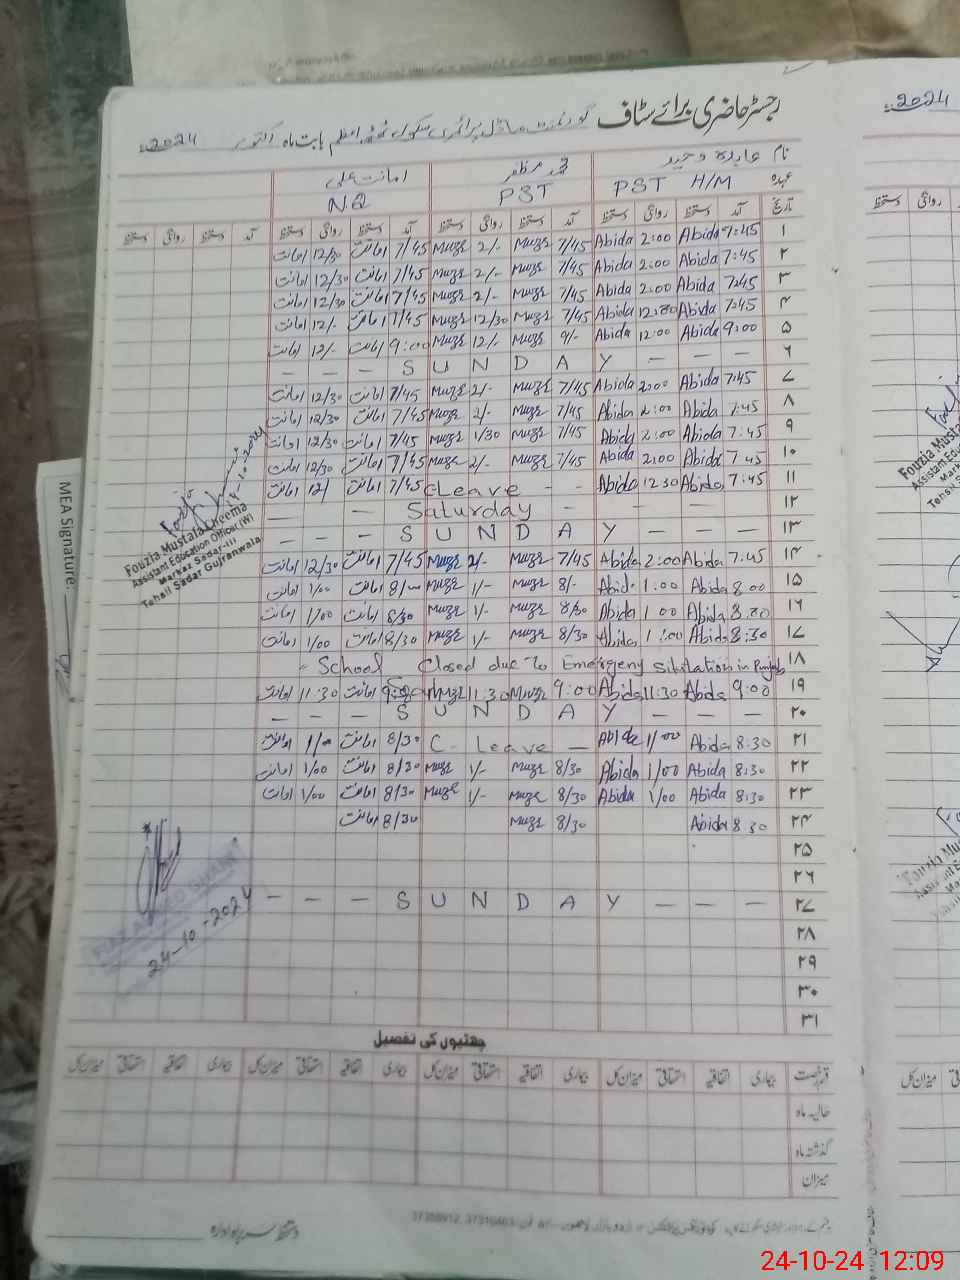 رجسٹر حاضری برائے سٹاف
گورنمنٹ ماڈل پرائمری سکول ٹھٹھہ اعظم بابت ماہ اکتوبر 2024
نام عابدہ وحید محمد مظفر امانت علی
عہدہ PST H/M PST NQ
تاریخ آمد دستخط روانگی دستخط آمد دستخط روانگی دستخط آمد دستخط روانگی دستخط آمد دستخط روانگی دستخط
۱ 7:45 Abida 2:00 Abida 7/45 Muzr 2/- Muzr 7/45 امانت 12/30 امانت
۲ 7:45 Abida 2:00 Abida 7/45 Muzr 2/- Muzr 7/45 امانت 12/30 امانت
۳ 7:45 Abida 2:00 Abida 7/45 Muzr 2/- Muzr 7/45 امانت 12/30 امانت
۴ 7:45 Abida Abida 7/45 Muzr 12/30 Muzr 7/45 امانت 12/- امانت
۵ 9:00 Abida 12:00 Abida 9/- Muzr 12/- Muzr 9:00 امانت 12/- امانت
۶ — — — S U N D A Y — — —
۷ 7:45 Abida 2:00 Abida 7/45 Muzr 2/- Muzr 7/45 امانت 12/30 امانت
۸ 7:45 Abida 2:00 Abida 7/45 Muzr 2/- Muzr 7/45 امانت 12/30 امانت
۹ 7:45 Abida 2:00 Abida 7/45 Muzr 1/30 Muzr 7/45 امانت 12/30 امانت
۱۰ 7:45 Abida 2:00 Abida 7/45 Muzr 2/- Muzr 7/45 امانت 12/30 امانت
۱۱ 7:45 Abida 12 30 Abida - - C Leave 7/45 امانت 12/ امانت
۱۲ — — Saturday — — —
۱۳ — — — S U N D A Y — — —
۱۴ 7:45 Abida 2:00 Abida 7/45 Muzr 2/- Muzr 7/45 امانت 12/30 امانت
۱۵ 8:00 Abida 1:00 Abida 8/- Muzr 1/- Muzr امانت 1/00 امانت
۱۶ Abida 1 00 Abida 8/30 Muzr 1/- Muzr 8/30 امانت 1/00 امانت
۱۷ 8:30 Abida 1:00 Abida 8/30 Muzr 1/- Muzr 8/30 امانت 1/00 امانت
۱۸ School Closed due to Emergeny Sitution in Punjab
۱۹ 9:00 Abida 11:30 Abida 9:00 Muzr 11:30 Muzr امانت 11:30 امانت
۲۰ — — — S U N D A Y — — —
۲۱ 8:30 Abida 1/00 Abida C- Leave — 8/30 امانت 1/00 امانت
۲۲ 8:30 Abida 1/00 Abida 8/30 Muzr 1/- Muzr 8/30 امانت 1/00 امانت
۲۳ 8:30 Abida 1/00 Abida 8/30 Muzr 1/- Muzr 8/30 امانت 1/00 امانت
۲۴ 8 30 Abida 8/30 Muzr 8/30 امانت
۲۵
۲۶
۲۷ — — — S U N D A Y — — —
۲۸
۲۹
۳۰
۳۱
Fouzia Mustafa Cheema
Assistant Education Officer (W)
Markaz Sadar-III
Tehsil Sadar Gujranwala
24-10-2024
MEA Signature:
چھٹیوں کی تفصیل
قسم رخصت بیماری اتفاقیہ استحقاقی میزان کل بیماری اتفاقیہ استحقاقی میزان کل بیماری اتفاقیہ استحقاقی میزان کل بیماری اتفاقیہ استحقاقی میزان کل
حالیہ ماہ
گذشتہ ماہ
میزان
دستخط سربراہ ادارہ
2024
24-10-24 12:09